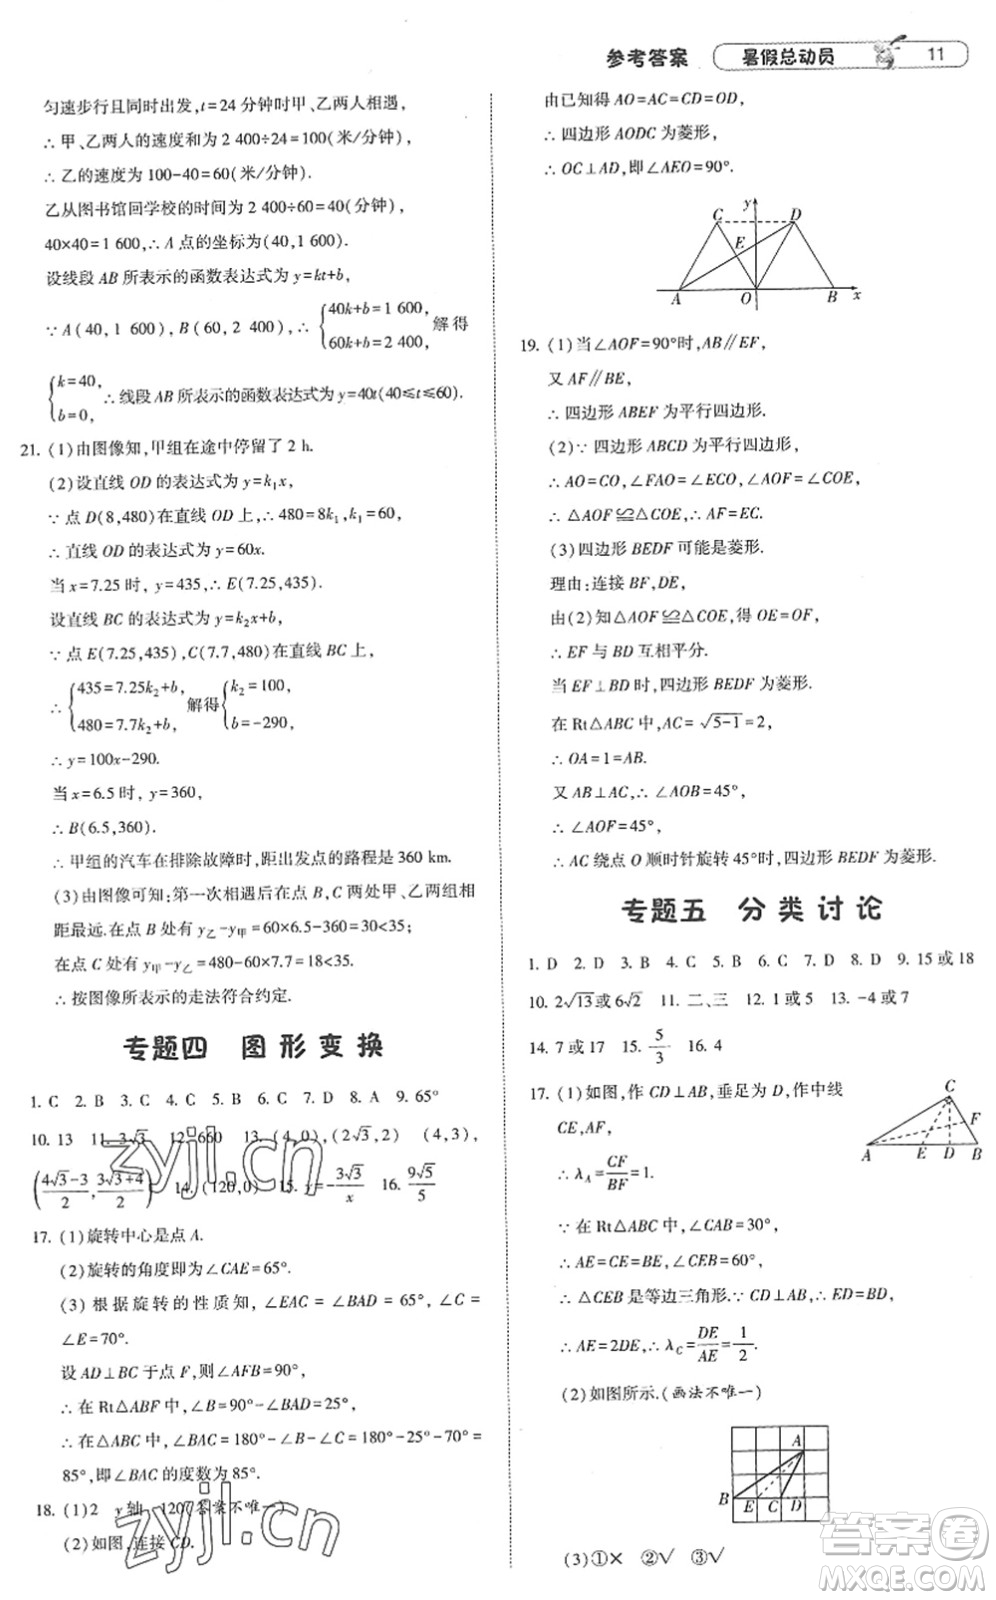 参考答案 暑假总动员 11
匀速步行且同时出发,t=24 分钟时甲、乙两人相遇,
∴甲、乙两人的速度和为 2 400÷24=100(米/分钟).
∴乙的速度为 100-40=60(米/分钟).
乙从图书馆回学校的时间为 2 400÷60=40(分钟),
40×40=1 600,∴A 点的坐标为(40,1 600).
设线段 AB 所表示的函数表达式为 y=kt+b,
∵A(40,1 600),B(60,2 400),∴{40k+b=1 600, 60k+b=2 400, 解得
{k=40, b=0, ∴线段 AB 所表示的函数表达式为 y=40t(40≤t≤60).
21. (1)由图像知,甲组在途中停留了 2 h.
(2)设直线 OD 的表达式为 y=k₁x,
∵点 D(8,480)在直线 OD 上,∴480=8k₁,k₁=60.
∴直线 OD 的表达式为 y=60x.
当 x=7.25 时,y=435,∴E(7.25,435).
设直线 BC 的表达式为 y=k₂x+b,
∵点 E(7.25,435),C(7.7,480)在直线 BC 上,
∴{435=7.25k₂+b, 480=7.7k₂+b, 解得{k₂=100, b=-290,
∴y=100x-290.
当 x=6.5 时,y=360,
∴B(6.5,360).
∴甲组的汽车在排除故障时,距出发点的路程是 360 km.
(3)由图像可知:第一次相遇后在点 B,C 两处甲、乙两组相
距最远.在点 B 处有 y乙-y甲=60×6.5-360=30<35;
在点 C 处有 y甲-y乙=480-60×7.7=18<35.
∴按图像所表示的走法符合约定.
专题四 图形变换
1. C 2. B 3. C 4. C 5. B 6. C 7. D 8. A 9. 65°
10. 13 11. 3√3 12. 660 13. (4,0),(2√3,2) (4,3),
((4√3-3)/2,(3√3+4)/2) 14. (120,0) 15. y=-3√3/x 16. 9√5/5
17. (1)旋转中心是点 A.
(2)旋转的角度即为∠CAE=65°.
(3)根据旋转的性质知,∠EAC=∠BAD=65°,∠C=
∠E=70°.
设 AD⊥BC 于点 F,则∠AFB=90°,
∴在 Rt△ABF 中,∠B=90°-∠BAD=25°,
∴在△ABC 中,∠BAC=180°-∠B-∠C=180°-25°-70°=
85°,即∠BAC 的度数为 85°.
18. (1)2 y 轴 120(答案不唯一)
(2)如图,连接 CD.
由已知得 AO=AC=CD=OD,
∴四边形 AODC 为菱形,
∴OC⊥AD,即∠AEO=90°.
y
C D
E
A O B x
19. (1)当∠AOF=90°时,AB∥EF,
又 AF∥BE,
∴四边形 ABEF 为平行四边形.
(2)∵四边形 ABCD 为平行四边形,
∴AO=CO,∠FAO=∠ECO,∠AOF=∠COE,
∴△AOF≌△COE,∴AF=EC.
(3)四边形 BEDF 可能是菱形.
理由:连接 BF,DE,
由(2)知△AOF≌△COE,得 OE=OF,
∴EF 与 BD 互相平分.
当 EF⊥BD 时,四边形 BEDF 为菱形.
在 Rt△ABC 中,AC=√(5-1)=2,
∴OA=1=AB.
又 AB⊥AC,∴∠AOB=45°,
∴∠AOF=45°,
∴AC 绕点 O 顺时针旋转 45°时,四边形 BEDF 为菱形.
专题五 分类讨论
1. D 2. D 3. B 4. C 5. B 6. C 7. D 8. D 9. 15 或 18
10. 2√13或 6√2 11. 二、三 12. 1 或 5 13. -4 或 7
14. 7 或 17 15. 5/3 16. 4
17. (1)如图,作 CD⊥AB,垂足为 D,作中线
CE,AF,
∴λA=CF/BF=1.
∵在 Rt△ABC 中,∠CAB=30°,
∴AE=CE=BE,∠CEB=60°,
∴△CEB 是等边三角形.∵CD⊥AB,∴ED=BD,
∴AE=2DE,∴λC=DE/AE=1/2.
C
F
A E D B
(2)如图所示.(画法不唯一)
A
B E C D
(3)①× ②√ ③√
zyjl.cn
zyjl.cn
答案圈
MXQE.COM